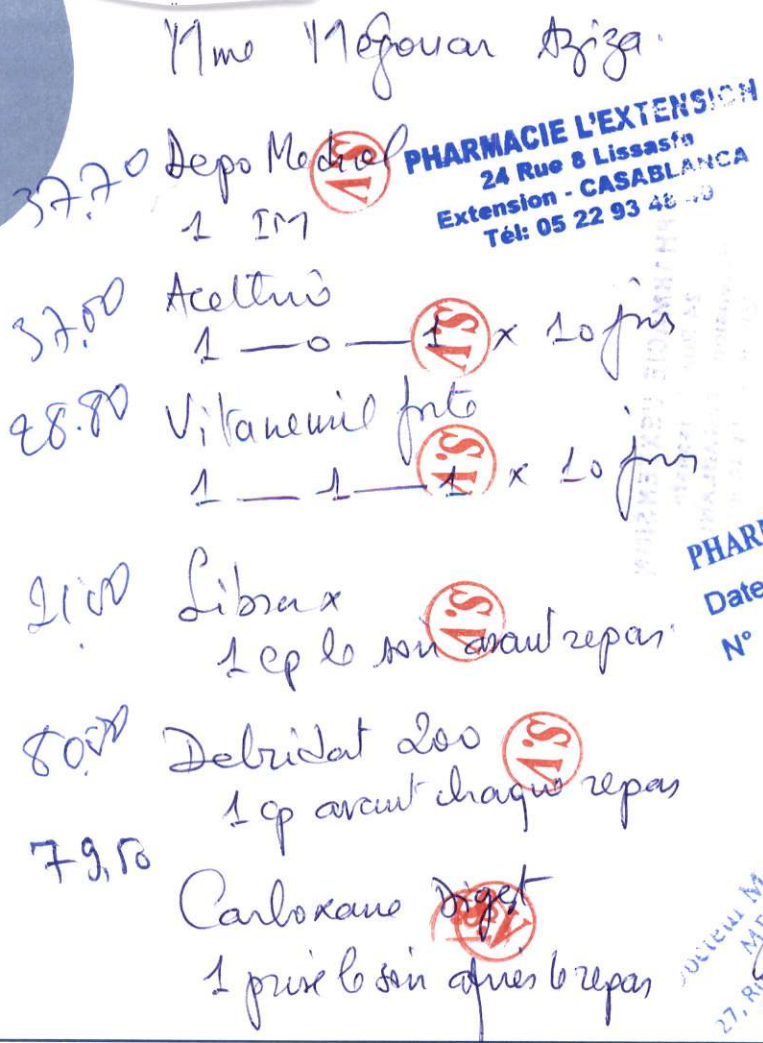 Mme Megouar Aziza.
PHARMACIE L'EXTENSION
24 Rue 8 Lissasfa
Extension - CASABLANCA
Tél: 05 22 93 48
37.70 Depo Medrol
1 IM
V'S
37,00
1 — 0 — 1 x 10 jrs
V'S
28.80 Vitanevril forte
1 — 1 — 1 x 10 jrs
V'S
21,00 Librax
1 cp le soir avant repas.
V'S
PHAR
Date
N°
80,00 Debridat 200
1 cp avant chaque repas
V'S
79,50
Carboxane Digest
1 prise le soir après le repas
27, R